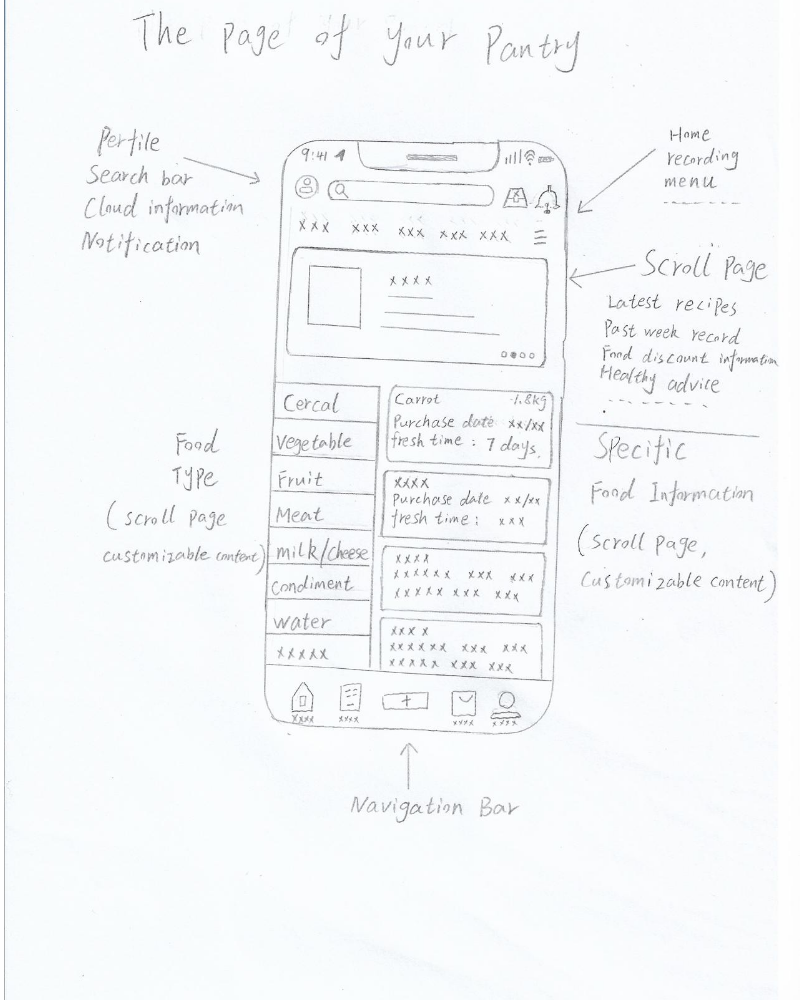 The page of your Pantry
Perfile
Search bar
Cloud information
Notification
Home
recording
menu
9:41
xxx xxx xxx xxx xxx
Scroll Page
Latest recipes
Past week record
Food discount information
Healthy advice
xxxx
Food
Type
(scroll page
customizable content)
Cercal
Vegetable
Fruit
Meat
milk/cheese
condiment
water
xxxxx
Carrot 1.8kg
Purchase date xx/xx
fresh time : 7 days.
xxxx
Purchase date xx/xx
fresh time : xxx
xxxx
xxxxxx xxx xxx
xxxxx xxx xxx
xxx x
xxxxxx xxx xxx
xxxxx xxx xxx
Specific
Food Information
(scroll page,
Customizable content)
xxxx xxxx xxxx xxxx
Navigation Bar